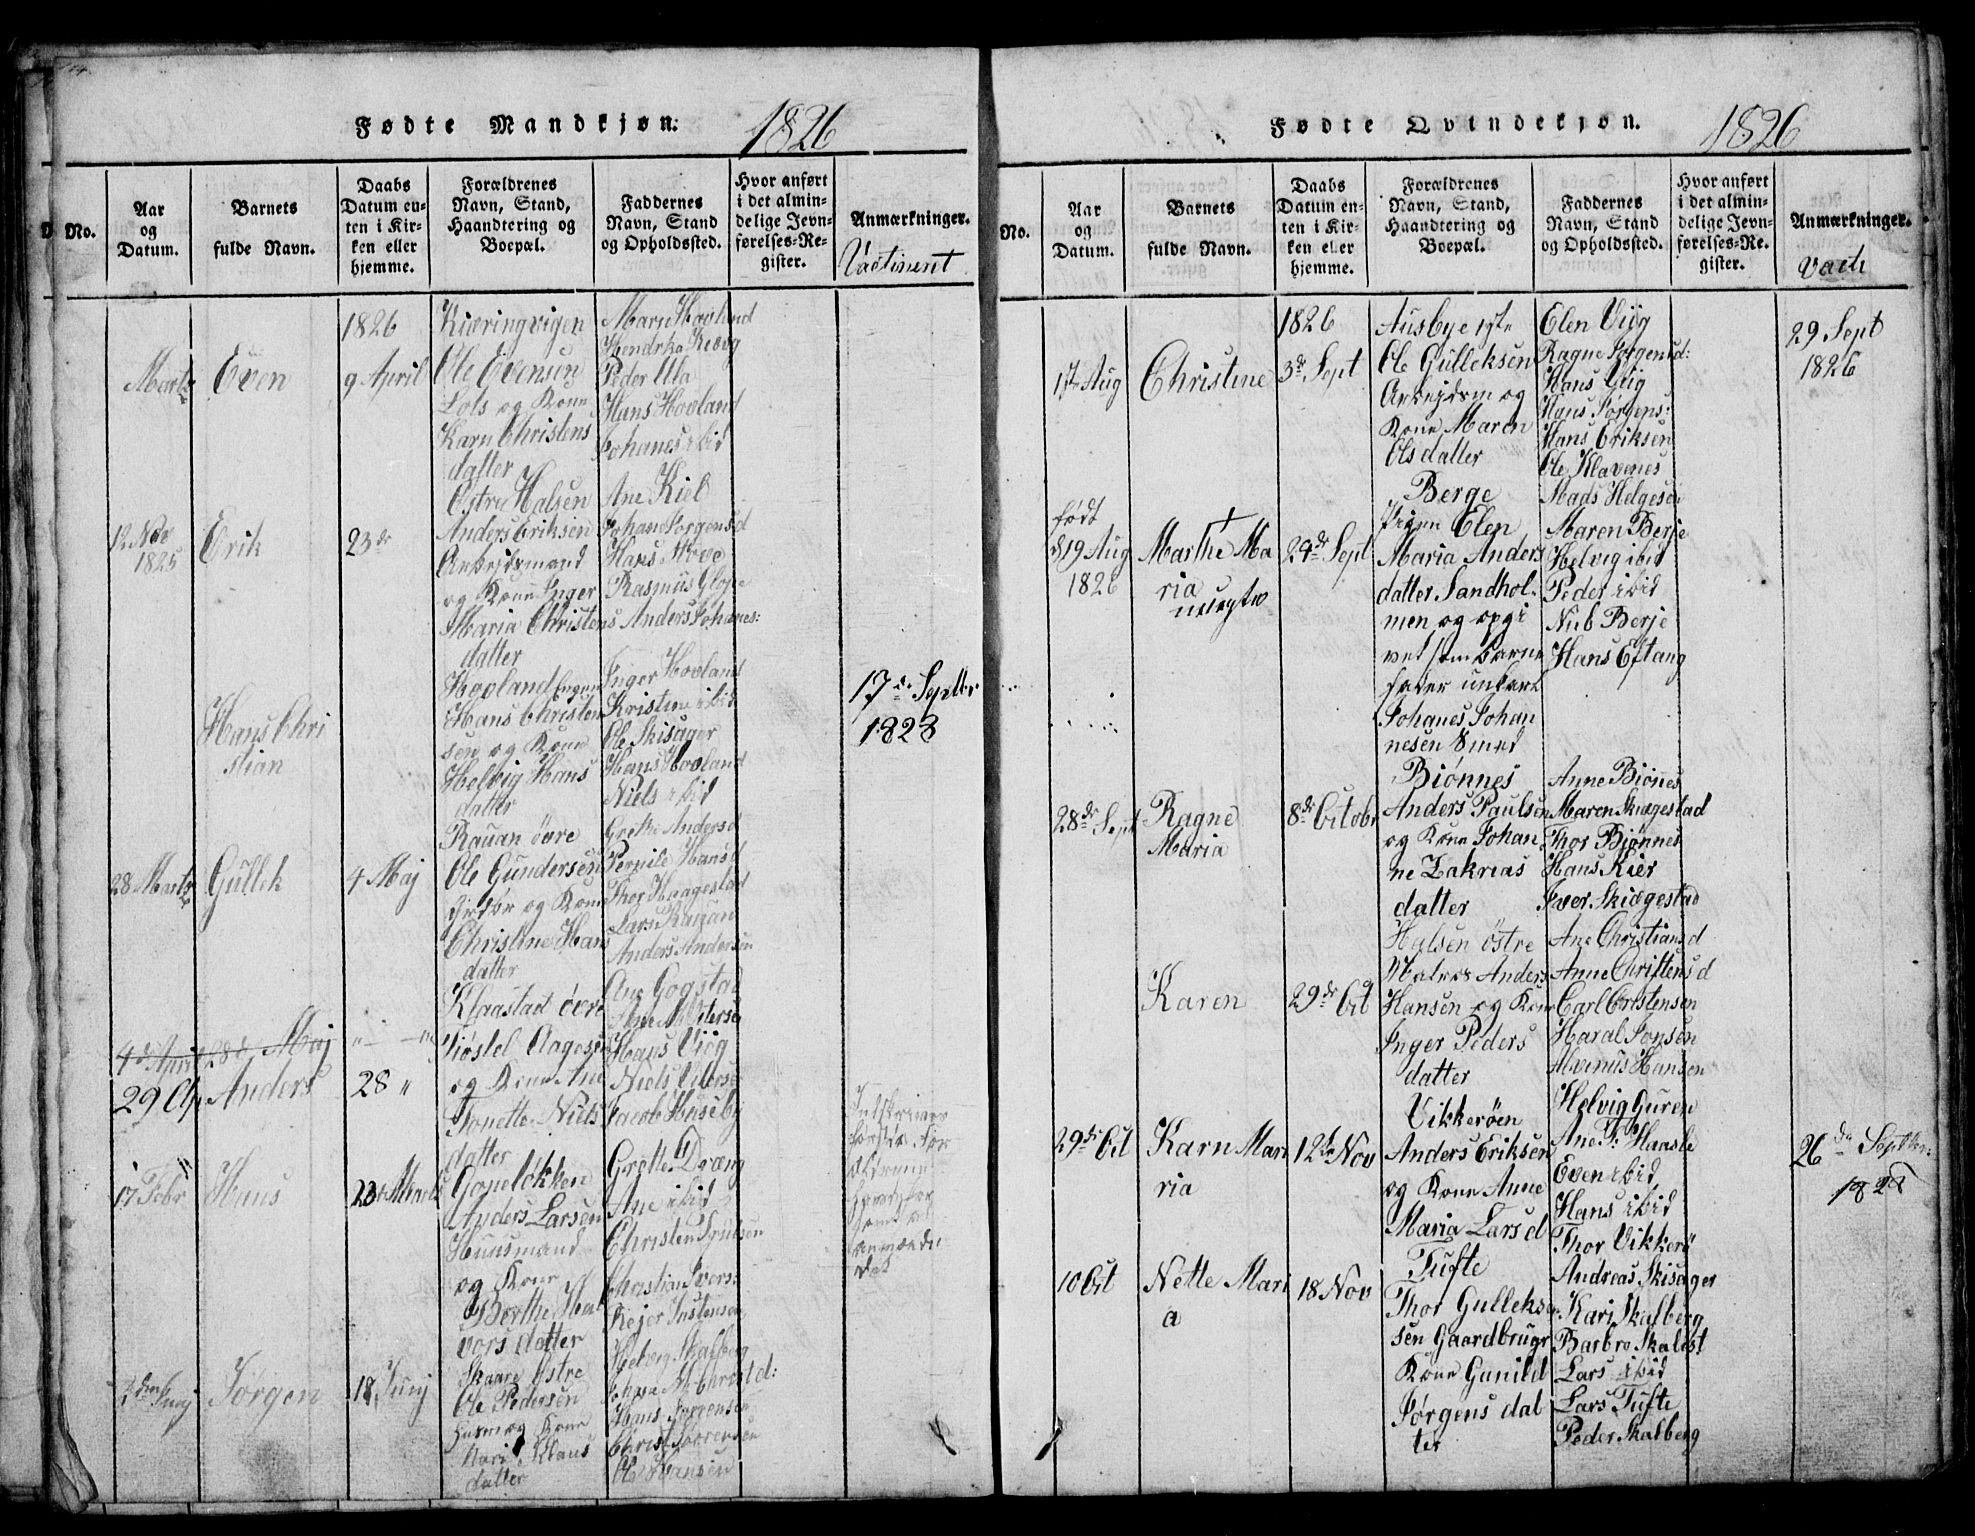 Fødte Mandkjøn. 1826
No.
Aar og Datum.
Barnets fulde Navn.
Daabs Datum enten i Kirken eller hjemme.
Forældrenes Navn, Stand, Haandtering og Boepæl.
Faddernes Navn, Stand og Opholdssted.
Hvor anført i det almindelige Jevnførelses-Register.
Anmærkninger.
Vactinent
Martz
Even
1826
9 April
Kiæringvigen
Ole Evensen
Lots og Kone
Karn Christens
datter
Marn Hovland
Peder Ula
Hans Hovland
Johanes ibid
12 Nov
1825
Erik
23de
Østre Halsen
Anders Eriksen
Arbeidsmand
og Kone Inger
Maria Christens
datter
Ane Kiel
Johane Jorgensd
Rasmus Glope
Anders Johanes:
Hans Chri
stian
Hovland
Hans Christen
sen og Kone
Helvig Hans
datter
Inger Hovland
Kristine ibid
Ole Skisager
Hans Hovland
Niels ibid
17de Septbr
1828
28 Martz
Gullek
4 Maj
Rauan övre
Ole Gundersen
og Kone
Christine Hans
datter
Grethe Andersd
Pernile Hansd
Thor Haagestad
Lars Rauan
Anders Andersen
4de April 28de Maj
29 Ap
Anders
28 "
Klaastad övre
Tiöstel Aagesen
og Kone Ane
Tonette Niels
datter
Ane Gogstad
Hans Viög
Jacob Huseby
17 Febr
Hans
23de Martz
Gopeløkken
Anders Larsen
Huusmand
og Kone
Berthe Hal
vors datter
Grette Dræng
Ane ibid
Christian Ivers:
2den Junj
Jørgen
18 Junj
Skaare østre
Ole Pedersen
Kari Klaus
datter
Helvig Skalberg
Hans Jørgensen
Ole Hansen
Fødte Qvindekjøn. 1826
No.
Aar og Datum.
Barnets fulde Navn.
Daabs Datum enten i Kirken eller hjemme.
Forældrenes Navn, Stand, Haandtering og Boepæl.
Faddernes Navn, Stand og Opholdssted.
Hvor anført i det almindelige Jevnførelses-Re. gister.
Anmærkninger.
Vach
17 Aug
Christine
1826
3de Sept
Ausbye
Ole Gulleksen
Arbejdsm og
Kone Maren
Olsdatter
Elen Viig
Ragne Jorgensd:
Hans Viig
Hans Jørgens:
Hans Eriksen
Ole Klavenes
Mads Helgesen
29 Sept
1826
født
19 Aug
1826
Marthe Ma
ria
uægte
24de Sept
Berge
Pigen Elen
Maria Anders
datter Sandhol-
men og opgi
vet som barne
fader unkarl
Johanes Johan
nesen Smed
Maren Berje
Helvig ibid
Peder ibid
Nub Berje
Hans Eftang
28de Sept
Ragne
Maria
8de Octobr
Biønnes
Anders Paulsen
og Kone Johan
ne Zakrias
datter
Anne Biønes
Maren Skiægestad
Thor Biønnes
Hans Kier
Iver Skiægestad
Karen
29de Oct
Halsen østre
Matros Anders
Hansen og Kone
Inger Peders
datter
Ane Christiansd
Anne Christensd
Carl Cristensen
Haral Jonsen
Alvinus Hansen
29de Oct
Karn Mari
ria
12te Nov
Vikkerøen
Anders Eriksen
og Kone Anne
Maria Larsd
Helvig Guren
Ane P: Haasle
Even ibid
Hans ibid
Thor Vikkerö
26de Septbr.
1828
10 Oct
Nette Mari
a
18 Nov
Tufte
Thor Gullek
sen Gaardbrugr
Kone Gunild
Jørgens dat
ter
Andreas Skisager
Kari Skalberg
Barbro Skalest
Lars ibid
Lars Tufte
Peder Skalberg